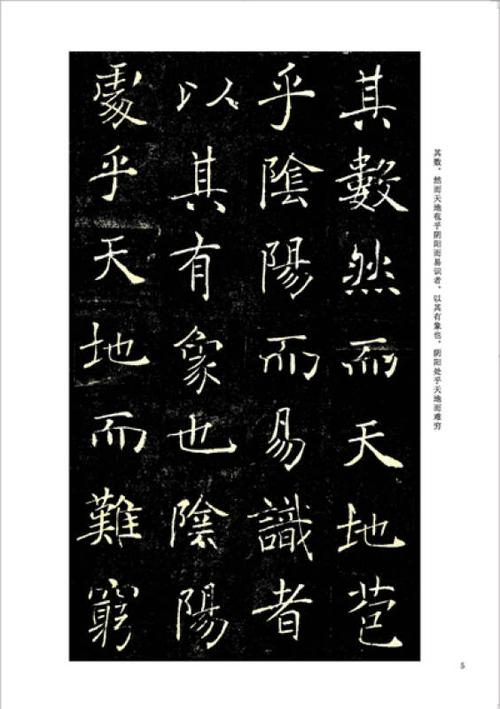 其數然而天地苞
乎陰陽而易識者
以其有象也陰陽
處乎天地而難窮
其数，然而天地苞乎阴阳而易识者，以其有象也，阴阳处乎天地而难穷
5